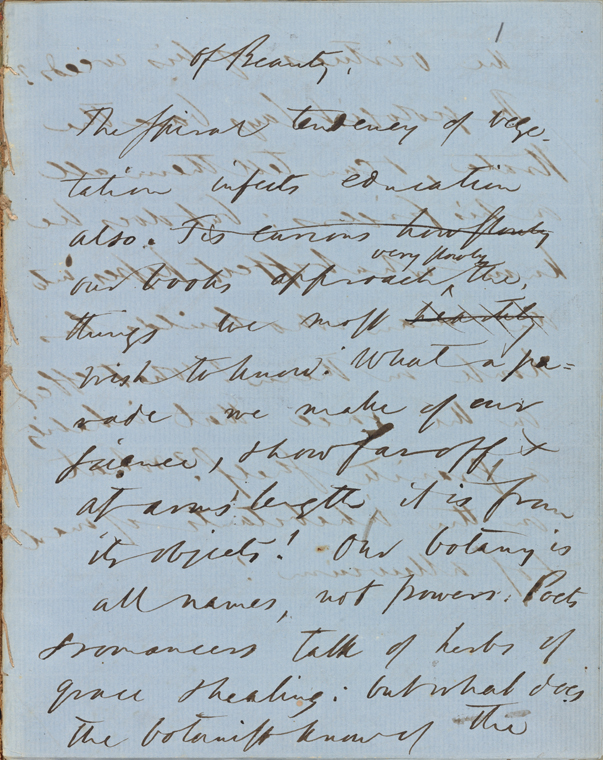 1
Of Beauty.
The spiral tendency of vege-
tation infects education
also. Tis curious how slowly
very slowly
our books approach the
things we most heartily
wish to know. What a pa=
rade we make of our
science, & how far off &
at arms' length it is from
its objects! Our botany is
all names, not powers: Poets
& romancers talk of herbs of
grace & healing: but what does
the botanist know of the